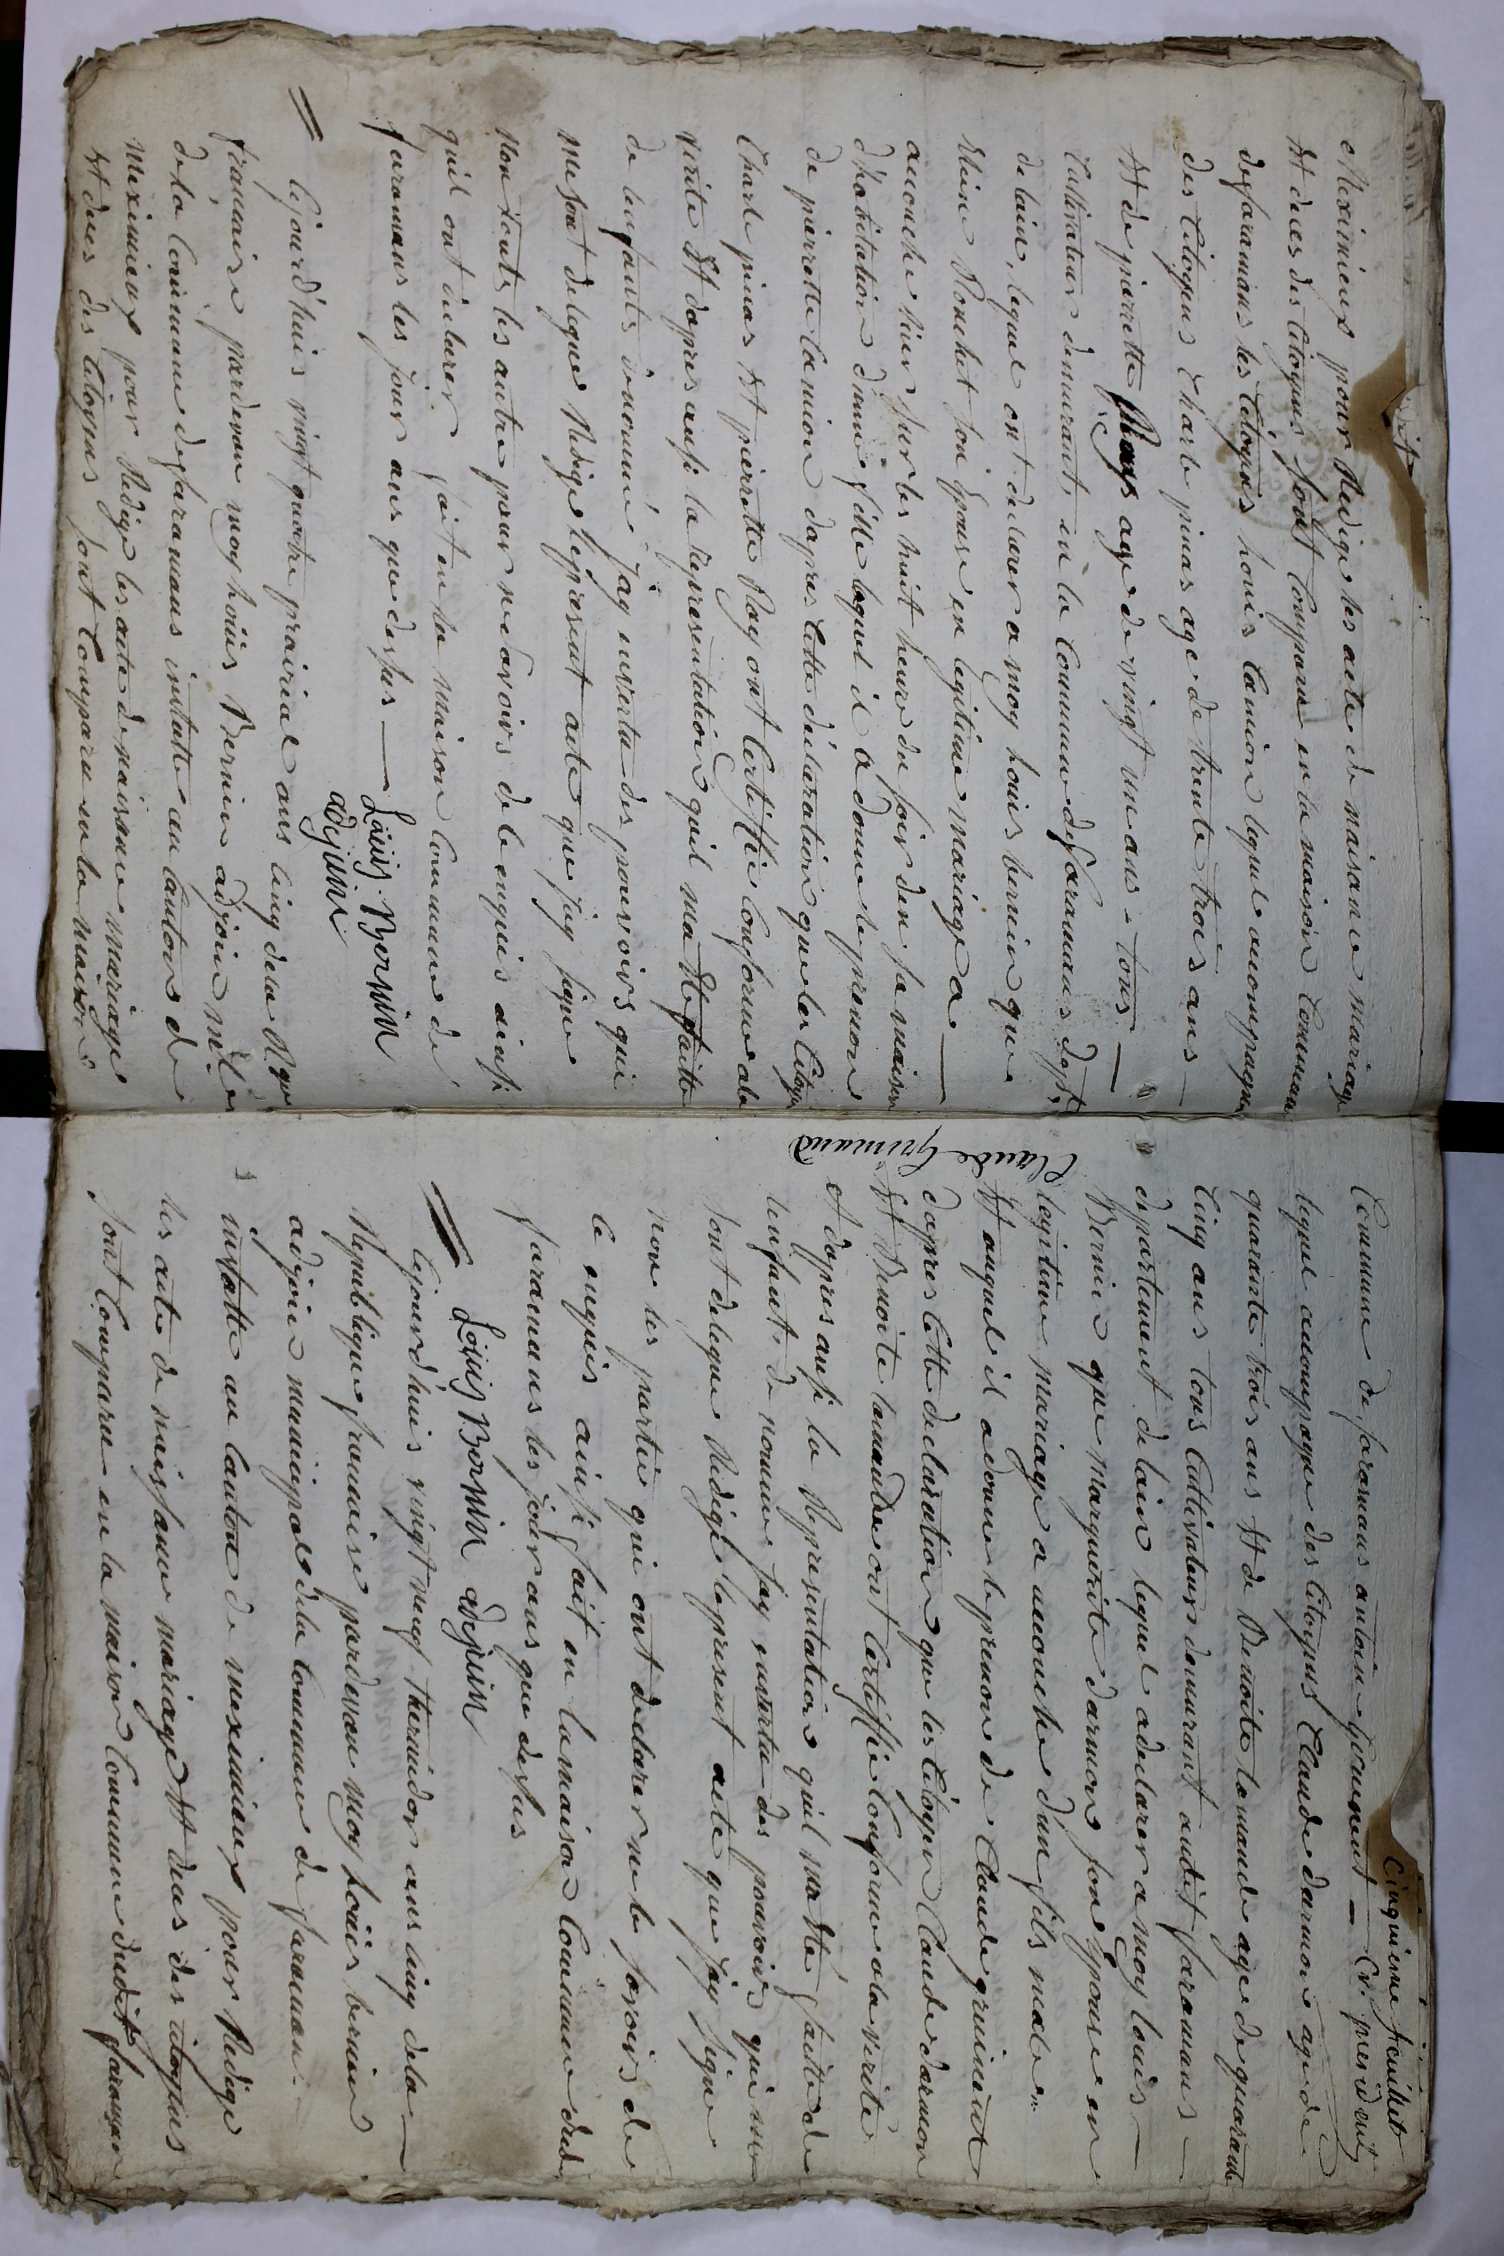 Meximieux pour Redige les acte de naisance mariage
et deces des Citoyens sont Comparus en la maison Commune
de faramans les Citoyens Louis Camion lequel accompagne
des Citoyens Charle pinas age de trente trois ans
et de pierrette Ray age de vingt un ans tous
Cultivateur demeurant en la Commune de faramans dept
de lain, lequel ont declarer a moy Louis bernin que
Ronchet son Epouse en legitime mariage a
accouche hier sur les huit heure du soir den sa maison
d'habitation dunne fille lequel il a donne le prenom
de pierrette Camion dapres Cette declaration que les Citoyen
Charle pinas et pierrette Ray ont Certiffié Conforme a la
verite et dapres ausi la Representation quil ma Ete faitte
de lenfants denommé jay envertu des pouvoirs qui
me sont delegue Redige lepresent acte que jay signe
non touts les autre pour ne savoirs de le enquis ainsi
quil ont declarer fait en la maison Commune de
faramans les jour ans que desus
Louis Bernin
adjoint
Cejourd'huis vingt quatre prairial ans cinq dela R.que
francaise pardevan moy Louis Bernin adjoin m.al
de la Commune de faramans instalte au Canton de
Meximieux pour Redige les acte denaissance mariage
et deces des Citoyens sont Comparu en la maison
Cinquieme feuillet
Commune de faramans antoine Grument — Cr. president
lequel accompagne des Citoyens Claude darmon age de
quarante trois ans et de Benoite lamande age de quarante
Cinq ans tous Cultivateurs demeurant audit faramans
departement delain lequel a declarer a moy Louis
Bernin que marguerite darmon son Epouse en
legitime mariage a accouche dun fils male
et auquel il a donne le prenom de Claude grument
dapres Cette declaration que les Citoyen Claude darmon
et Benoite lamande ont Certiffié Conforme a la verité
et dapres ausi la Representation quil ma Ete faitte de
lenfant denomme jay envertu des pouvoirs qui me
sont delegue Redige lepresent acte que jay signe
non les partie qui ont declarer ne le savoirs de
le enquis ainsi fait en la maison Commune dud.
faramans les jour ans que desus
Louis Bernin adjoin
Claude Grumand
Cejourd'huis vingt neuf thermidor ans cinq dela
Republique francaise pardevan moy Louis bernin
adjoin municipal dela Commune de faraman
instalte au Canton de meximieux pour Redige
les acte de naissance mariage et deces des citoyens
sont Comparu en la maison Commune dudit faramans